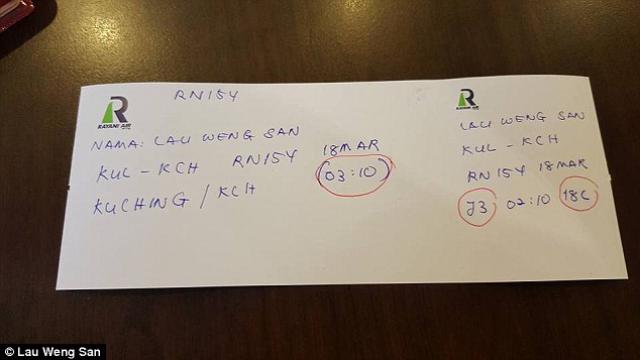 RN15Y
RAYANI AIR
NAMA: LAU WENG SAN
18MAR
KUL - KCH RN15Y (03:10)
KUCHING / KCH
RAYANI AIR
LAU WENG SAN
KUL - KCH
RN15Y 18MAR
J3 02:10 18C
© Lau Weng San